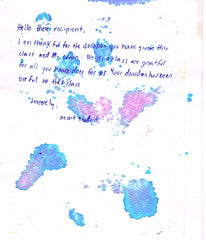 Hello there recipient,
I am thankful for the donation you have given this
class and Mr.
class are grateful
for all you have done for us. Your donation has been
useful to the class
Sincerely,
an art student